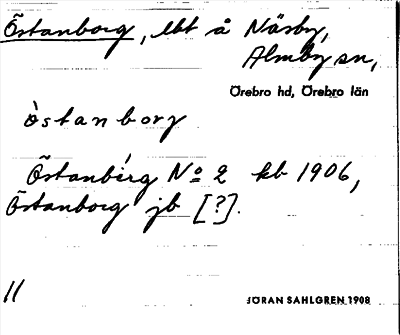 Östanborg, lbt å Näsby,
Almby sn,
Örebro hd, Örebro län
òstanborg
Östanberg No 2 kb 1906,
Östanborg jb [?].
11
JÖRAN SAHLGREN 1908